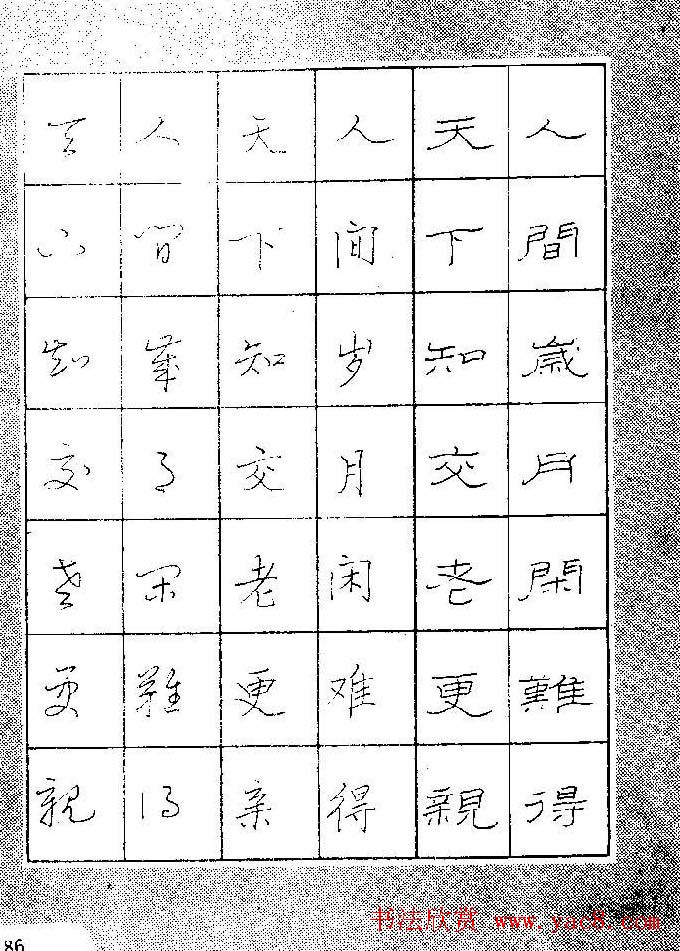 人間歲月閑難得
天下知交老更親
人间岁月闲难得
天下知交老更亲
人間歲月閑難得
天下知交老更親
书法欣赏 www.yac8.com
86